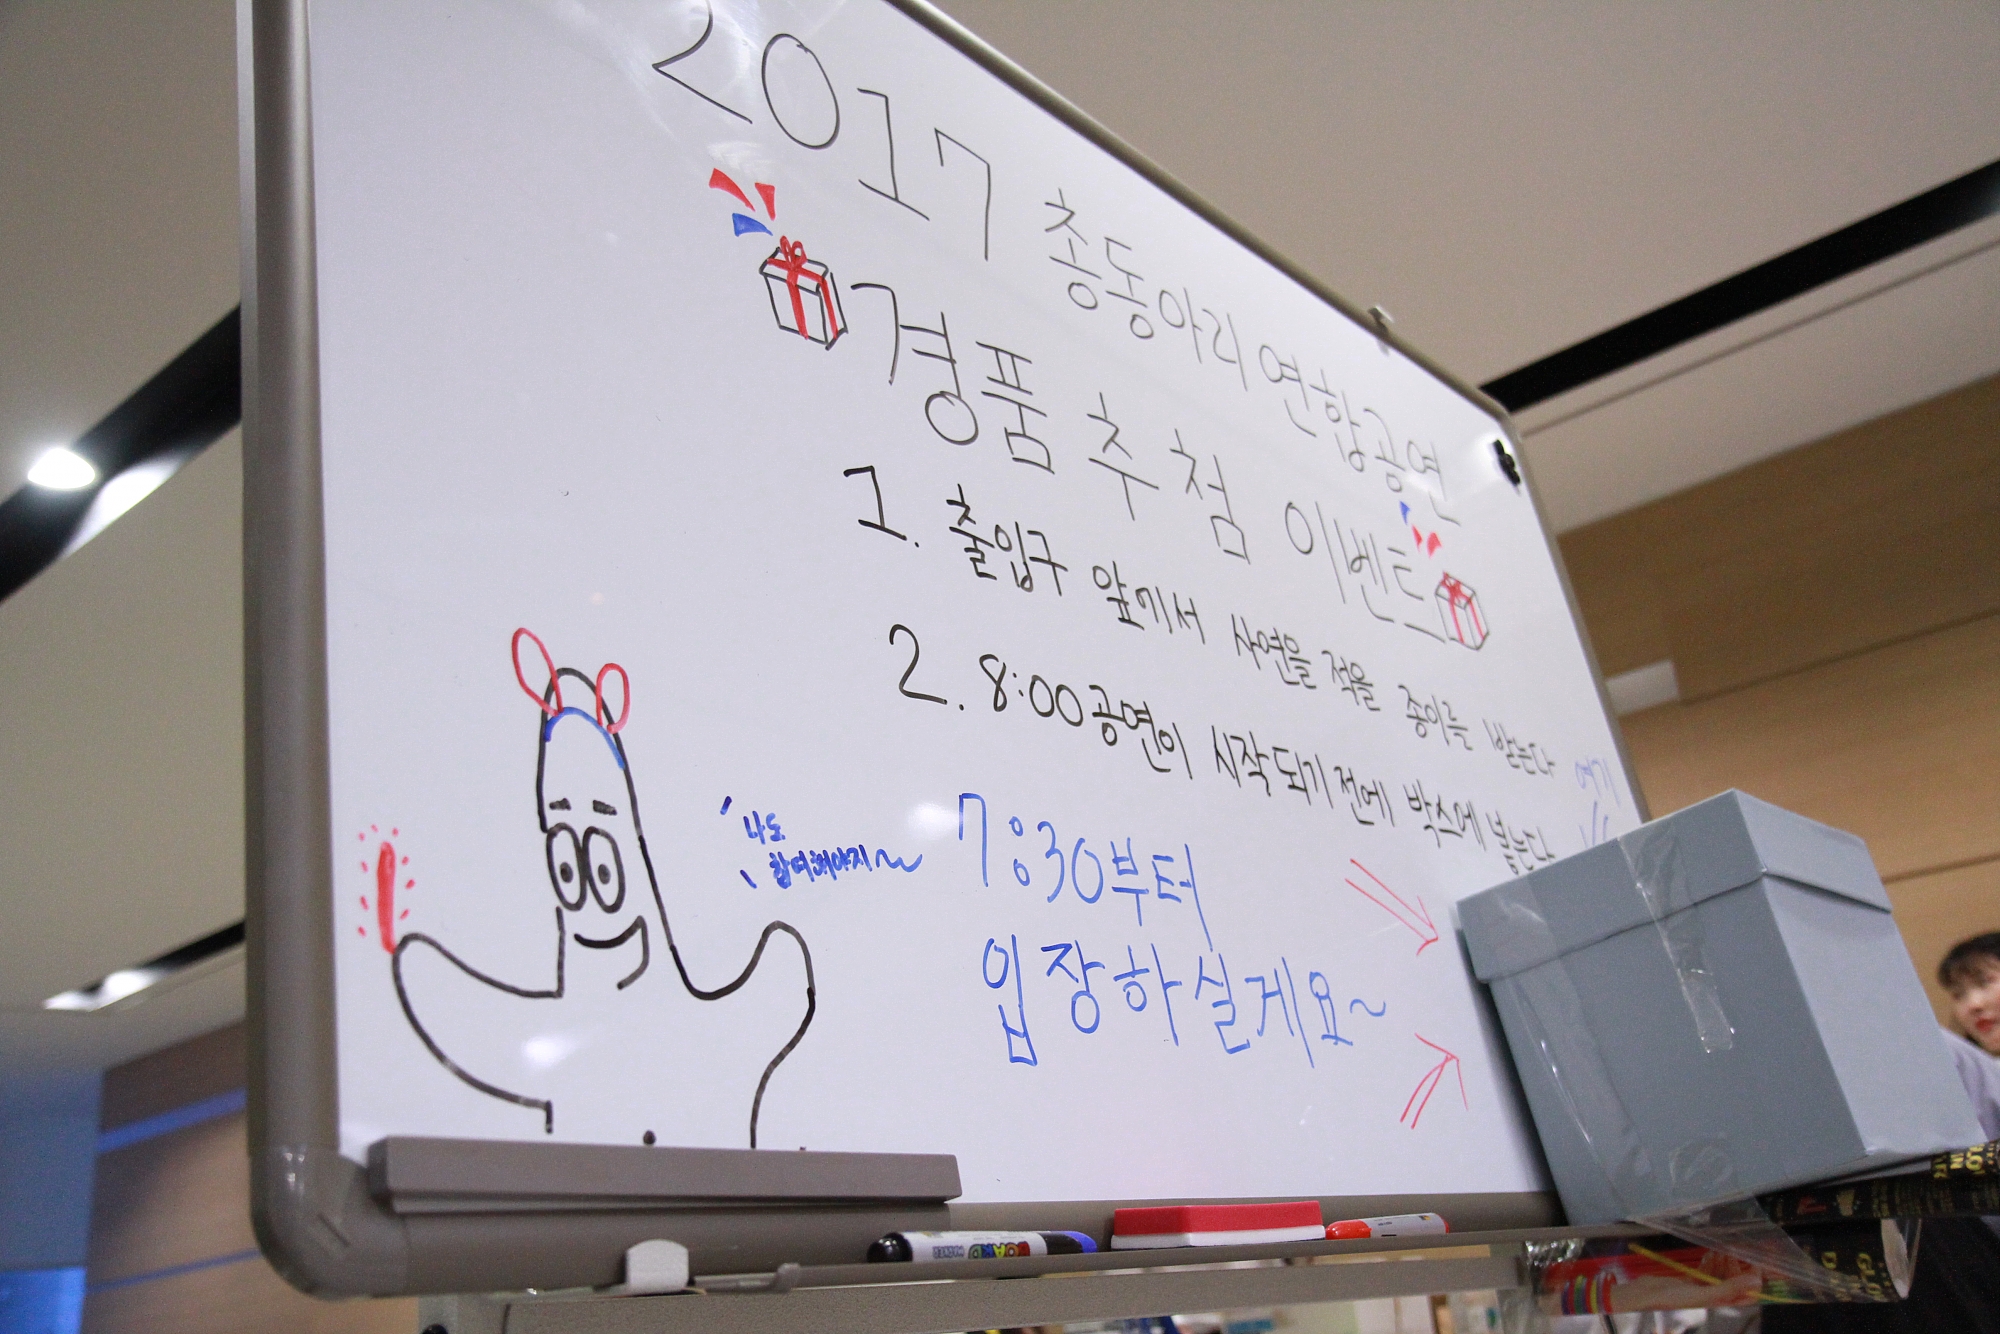 2017 총동아리 연합공연
경품 추첨 이벤트
1. 출입구 앞에서 사연을 적을 종이를 받는다
2. 8:00 공연이 시작되기 전에 박스에 넣는다
여기
나도
참여해야지~~
7:30부터
입장하실게요~
BOARD
MARKER